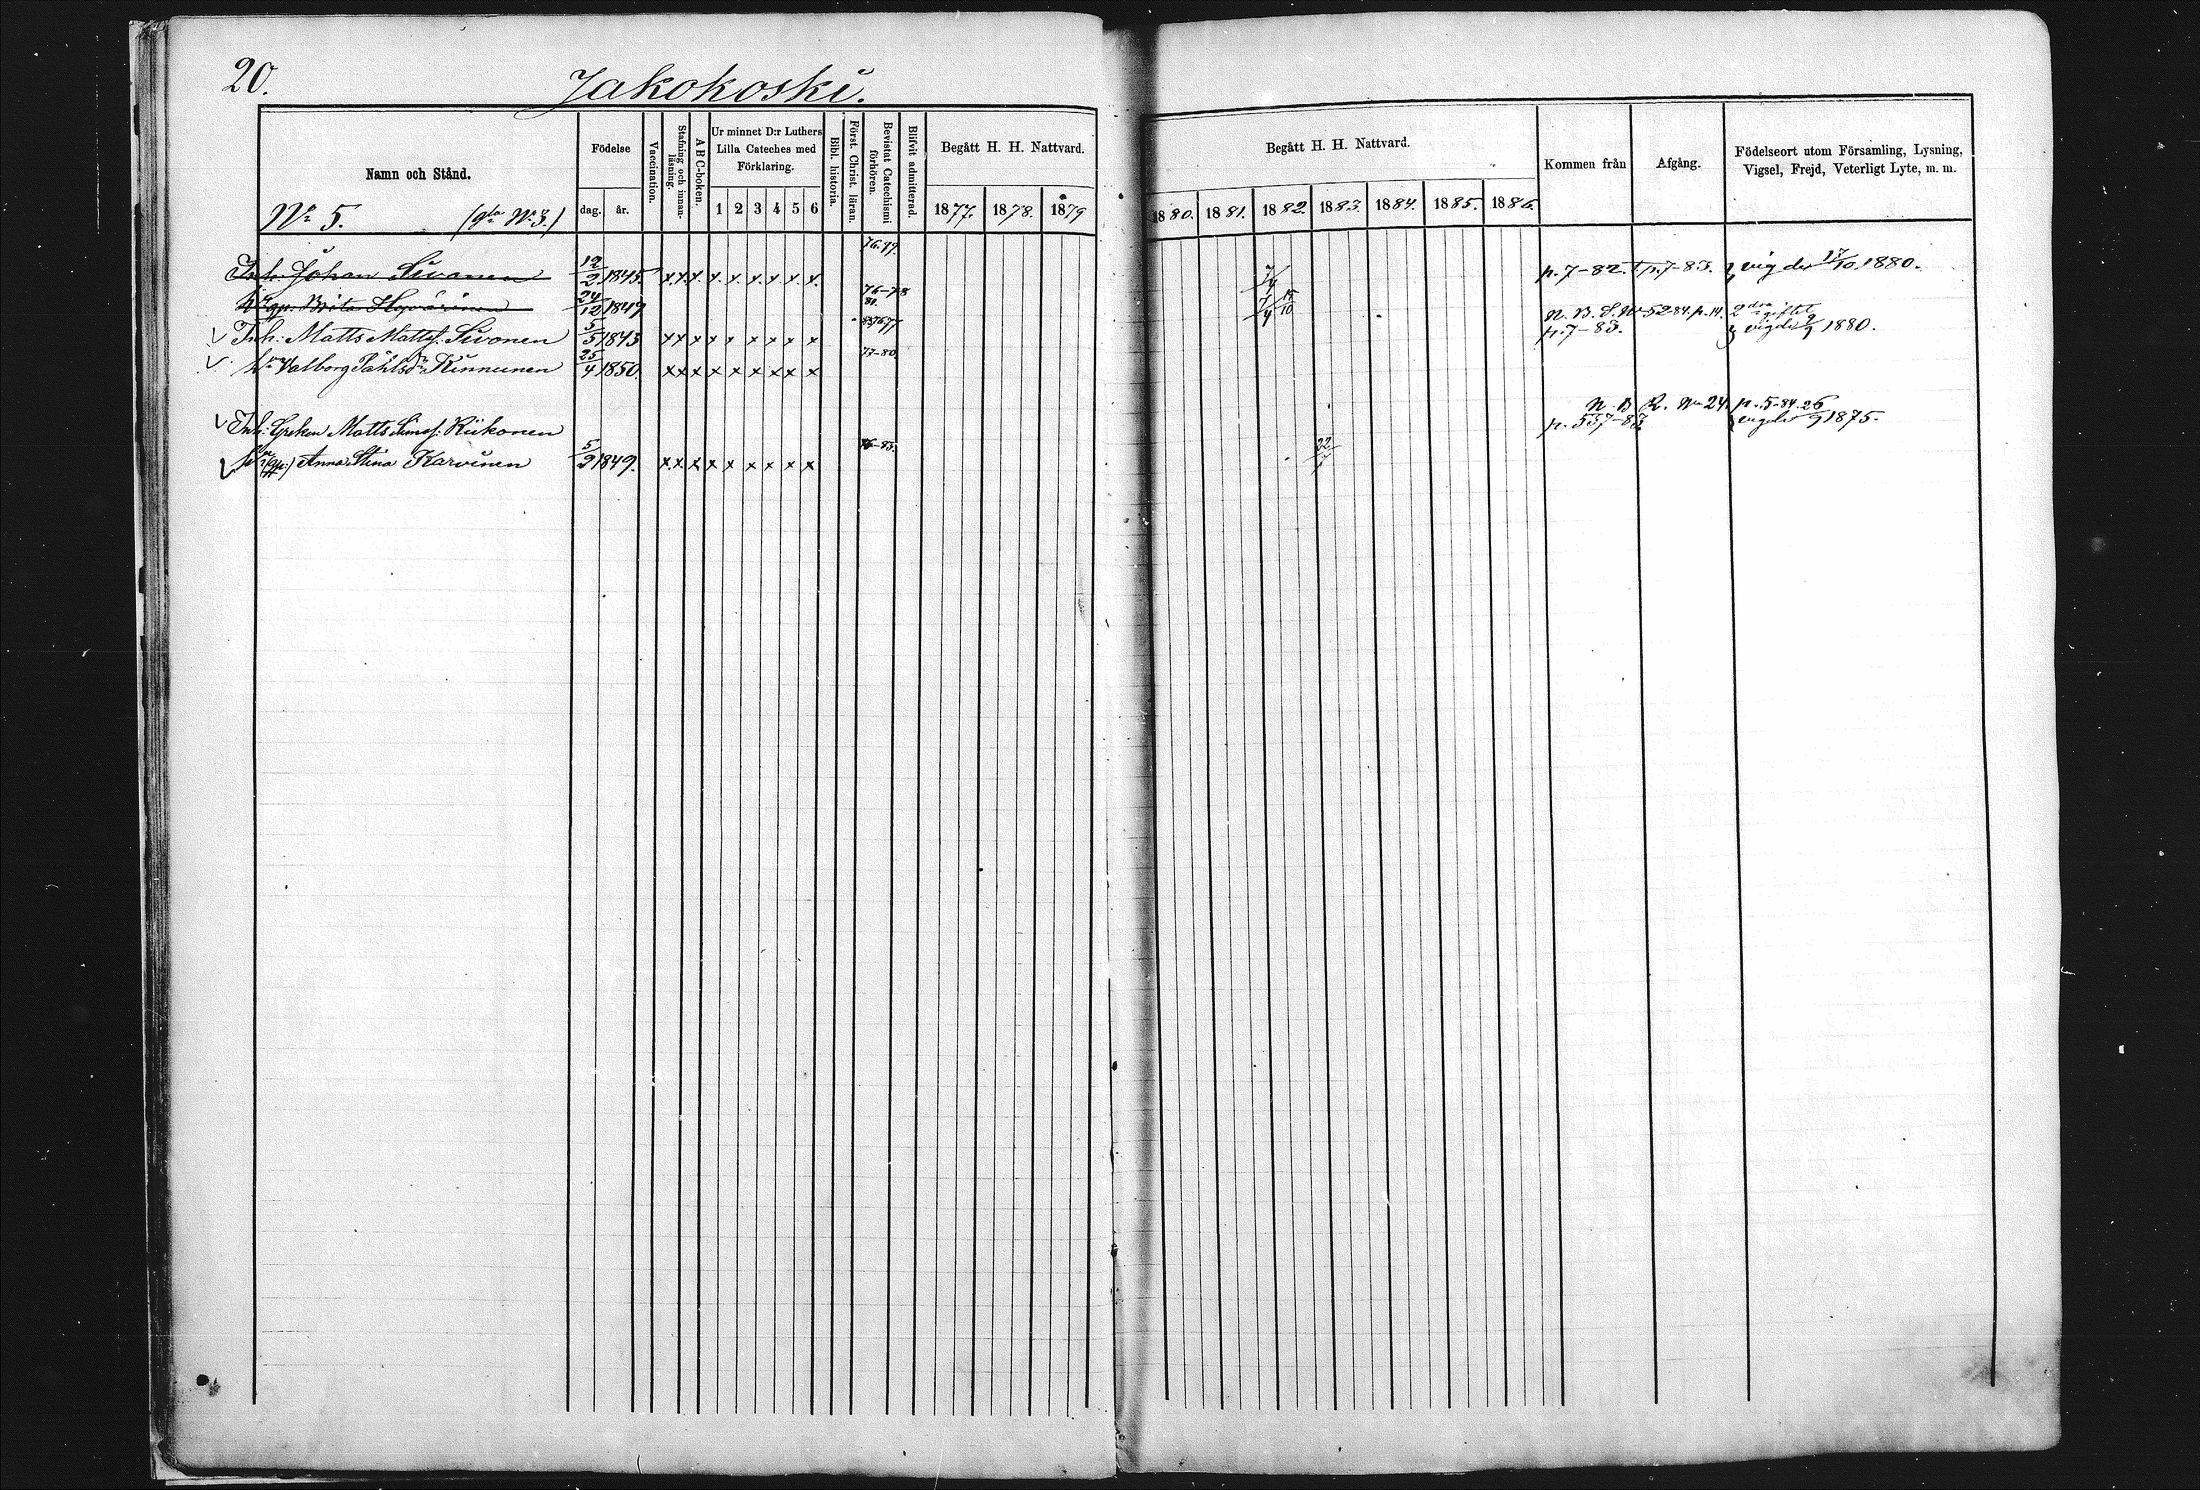 20.
Jakokoski.
Namn och Stånd.
Födelse
dag. år.
Vaccination.
Stafning och innanläsning.
A B C-boken.
Ur minnet D:r Luthers
Lilla Cateches med
Förklaring.
1 2 3 4 5 6
Bibl. historia.
Först. Christ. läran.
Bevistat Catechismi förhören.
Blifvit admitterad.
Begått H. H. Nattvard.
1877. 1878. 1879
Begått H. H. Nattvard.
1880. 1881. 1882. 1883. 1884. 1885. 1886.
Kommen från
Afgång.
Födelseort utom Församling, Lysning,
Vigsel, Frejd, Veterligt Lyte, m. m.
No 5. (gla No 3.)
Inh: Johan Sivonen 12/2 1845. x x x x x x x x x 76.79. 7/4 p. 7-82. p. 7-83. vigde 17/10 1880.
Brita 24/12 1849 76-78 81. 7/4 15/10 N. B. S. No 52-84. p. 14. 2dra gifte
Inh: Matts Mattss. Sivonen 5/5 1843 x x x x x x x x x 83 76 77 p. 7-83. vigde 2/7 1880.
Valborg Påhlsdr Kinnunen 25/4 1850. x x x x x x x x x 77-80.
N. B. R. No 24. p. 5-84.
Inh: Matts Simos: Riikonen p. 537-83 vigde 26/9 1875.
Anna Stina Karvinen 5/9 1849. x x x x x x x x x 76-83. 22